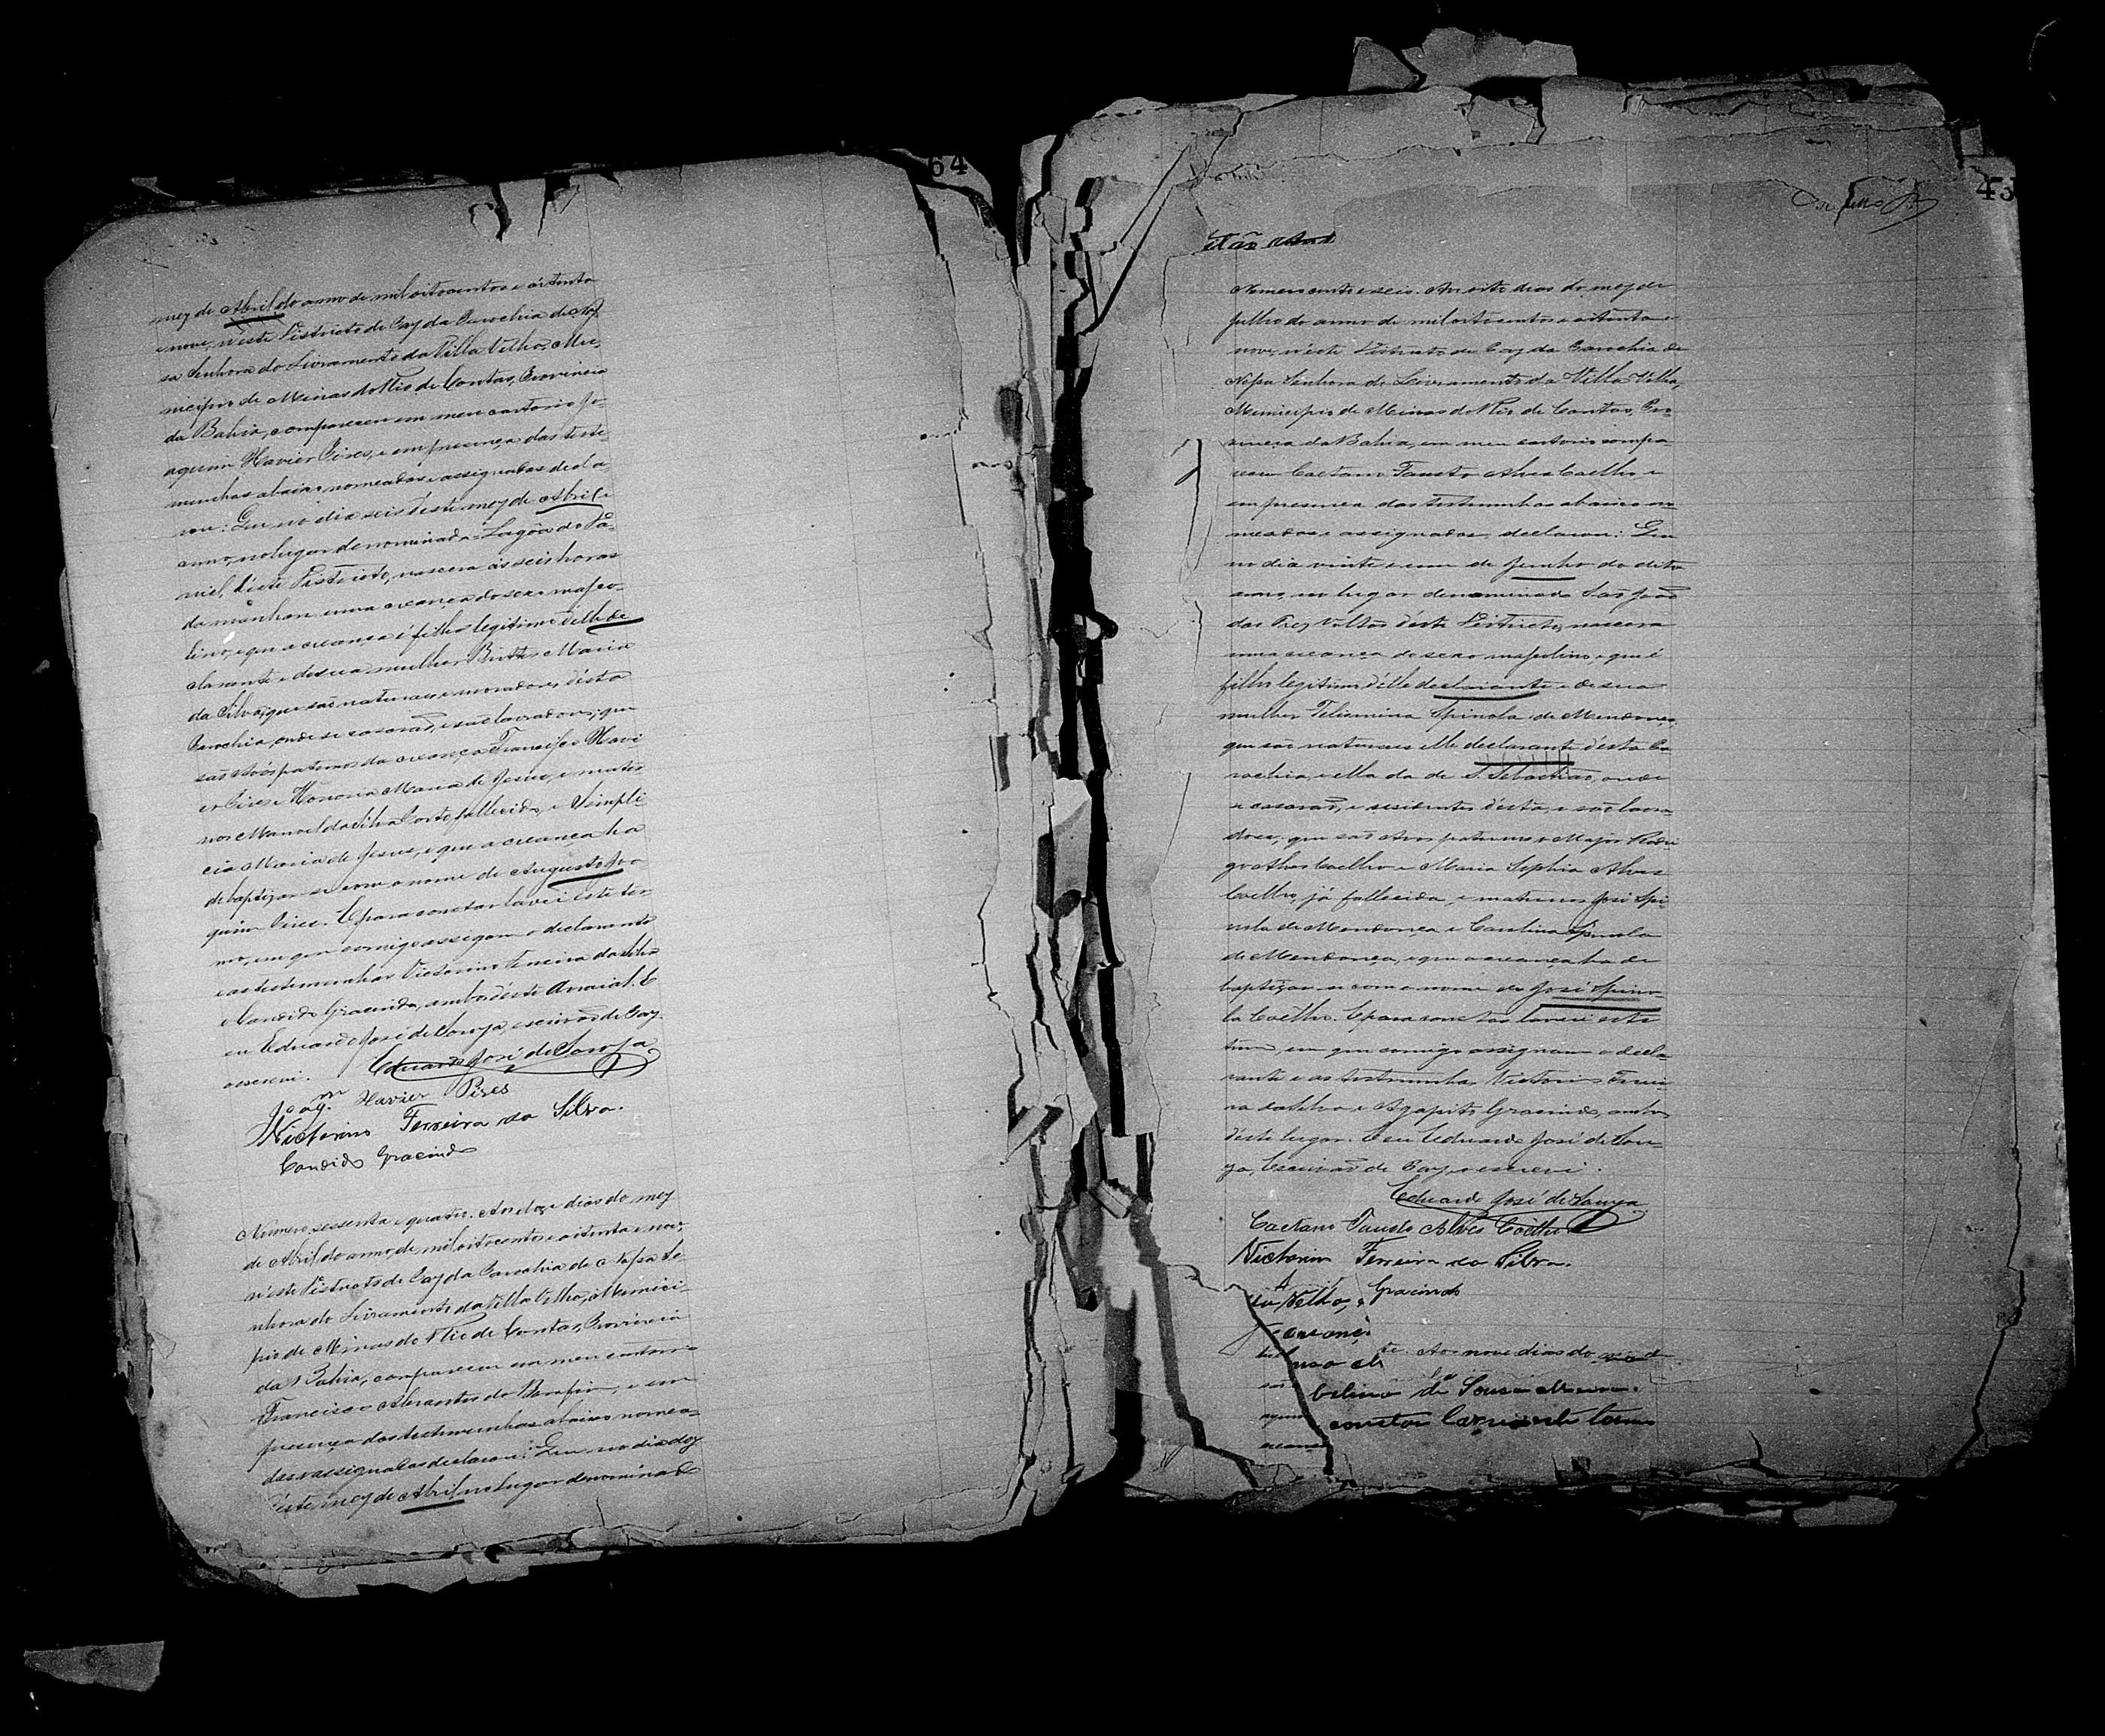 64
mez de Abril do anno de mil oitocentos e oitenta
e nove, n'este Districto de Paz da Parochia de Nos
sa Senhora do Livramento da Villa Velha, Mu
nicipio de Minas do Rio de Contas, Provincia
da Bahia, compareceu em meu cartorio Jo
aquim Xavier Pires, e em presença das teste
munhas abaixo nomeadas e assignadas decla
rou: Que no dia seis d'este mez de Abril e
anno, no lugar denominado Lagôa do
d'este Districto, nascera ás seis horas
da manhan uma creança do sexo mascu
lino, e que a creança é filho legitimo d'elle de
clarante e de sua mulher Maria
da Silva, que são naturaes e moradores d'esta
Parochia, onde se casarão, e são lavradores; que
são Avós paternos da creança Francisco Xavi
er Pires e Honoria Maria de Jesus, e mater
nos Manoel da Silva Porto, fallecido, e Simpli
cia Maria de Jesus, e que a creança ha
de baptizar-se com o nome de Augusto Joa
quim Pires. E para constar lavrei este ter
mo, em que comigo assignam o declarante
e as testemunhas Victorino Ferreira da Silva
e Candido Gracindo, ambos d'este Arraial. E
eu Eduardo José de Souza, escrivão de Paz
o escrevi. Eduardo José de Souza
Joaqm Xavier Pires
Victorino Ferreira da Silva.
Candido Gracindo
Numero sessenta e quatro. Aos doze dias do mez
de Abril do anno de mil oitocentos e oitenta e nove,
n'este Districto de Paz da Parochia de Nossa Se
nhora do Livramento da Villa Velha, Munici
pio de Minas do Rio de Contas, Provincia
da Bahia, compareceu em meu cartorio
Francisco Abrantes do Bomfim, e em
presença das testemunhas abaixo nomea
das e assignadas declarou: Que no dia dez
d'este mez de Abril no lugar denominado
43
Numero cento e seis. Aos oito dias do mez de
Julho do anno de mil oitocentos e oitenta e
nove, n'este Districto de Paz da Parochia de
Nossa Senhora do Livramento da Villa Velha,
Municipio de Minas do Rio de Contas, Pro
vincia da Bahia, em meu cartorio compa
receu Caetano Fausto Alves Coelho, e
em presença das testemunhas abaixo no
meadas e assignadas, declarou: Que
no dia vinte e um de Junho do dito
anno, no lugar denominado São João
das Trez Voltas d'este Districto, nascera
uma creança do sexo masculino, e que é
filho legitimo d'elle declarante e de sua
mulher Felismina Spinola de Mendonça,
que são naturaes elle declarante d'esta Pa
rochia, e ella da de S. Sebastião, onde
se casarão, e residentes d'esta, e são lavra
dores; que são Avós paternos o Major Rodri
go Alves Coelho e Maria Sophia Alves
Coelho, já fallecida, e maternos José Spi
nola de Mendonça e Carolina Spinola
de Mendonça, e que a creança ha de
baptizar-se com o nome de José Spino
la Coelho. E para constar lavrei este
termo, em que comigo assignam o decla
rante e as testemunhas Victorino Ferrei
ra da Silva e Agapito Gracindo, ambos
d'este lugar. E eu Eduardo José de Sou
za, Escrivão de Paz, o escrevi.
Eduardo José de Souza
Caetano Fausto Alves Coelho
Victorino Ferreira da Silva.
Gracindo
Velha,
Aos nove dias do
de Souza
constar lavrei este termo